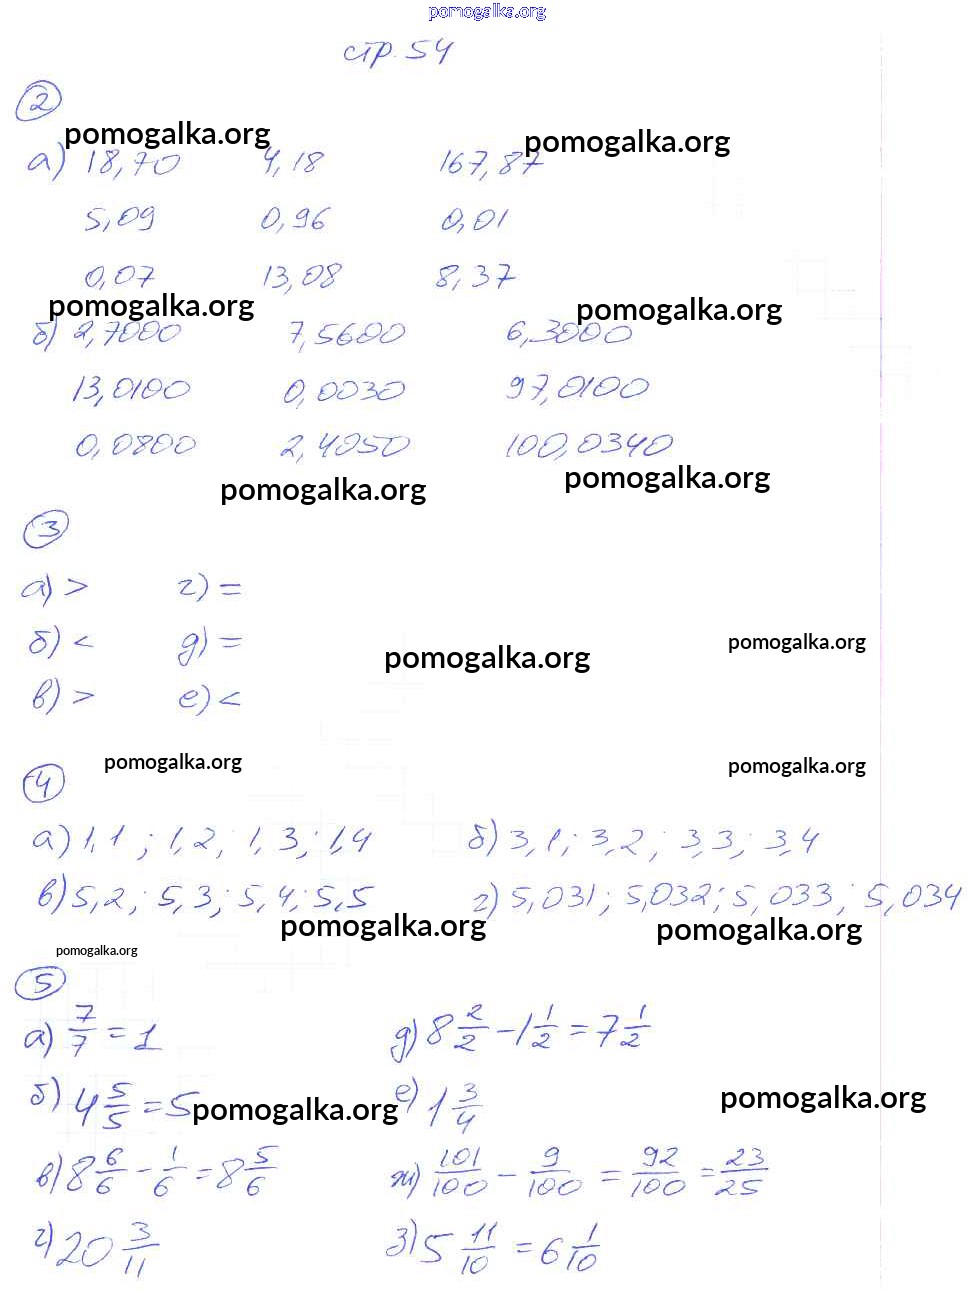 pomogalka.org
стр. 54
2
pomogalka.org pomogalka.org
а) 18,70 4,18 167,87
5,09 0,96 0,01
0,07 13,08 8,37
pomogalka.org pomogalka.org
б) 2,7000 7,5600 6,3000
13,0100 0,0030 97,0100
0,0800 2,4050 100,0340
pomogalka.org pomogalka.org
3
а) > г) =
б) < д) =
в) > е) <
pomogalka.org pomogalka.org
pomogalka.org pomogalka.org
4
а) 1,1 ; 1,2 ; 1,3 ; 1,4 б) 3,1 ; 3,2 ; 3,3 ; 3,4
в) 5,2 ; 5,3 ; 5,4 ; 5,5 г) 5,031 ; 5,032 ; 5,033 ; 5,034
pomogalka.org pomogalka.org
pomogalka.org
5
а) 7/7 = 1 д) 8 2/2 - 1 1/2 = 7 1/2
б) 4 5/5 = 5 е) 1 3/4
pomogalka.org pomogalka.org
в) 8 6/6 - 1/6 = 8 5/6 ж) 101/100 - 9/100 = 92/100 = 23/25
г) 20 3/11 з) 5 11/10 = 6 1/10